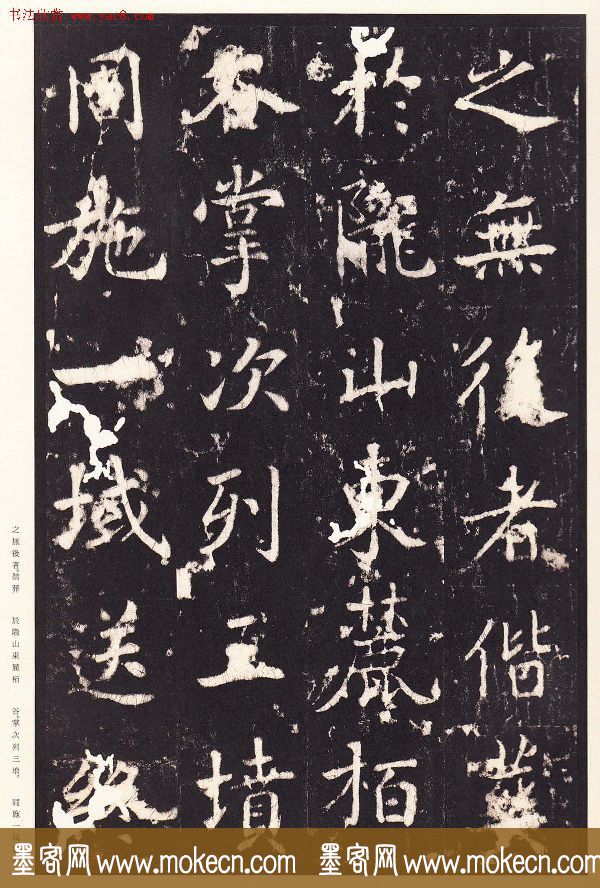 书法欣赏 www.yac8.com
之無後者偕葬
於隴山東麓栢
谷掌次列三墳
同施一域送終
之無後者。偕葬 於隴山東麓栢 谷掌。次列三墳。 同施一
墨客网 www.mokecn.com 墨客网 www.mokecn.com